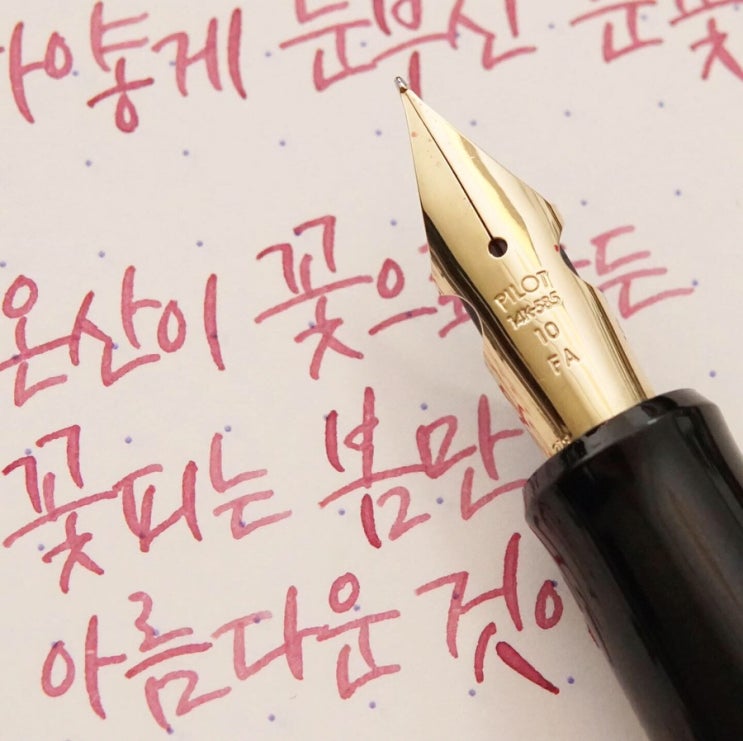 하얗게 눈부신 눈꽃
온산이 꽃으로 만든
꽃피는 봄만
아름다운 것이
PILOT
14K-585
10
FA